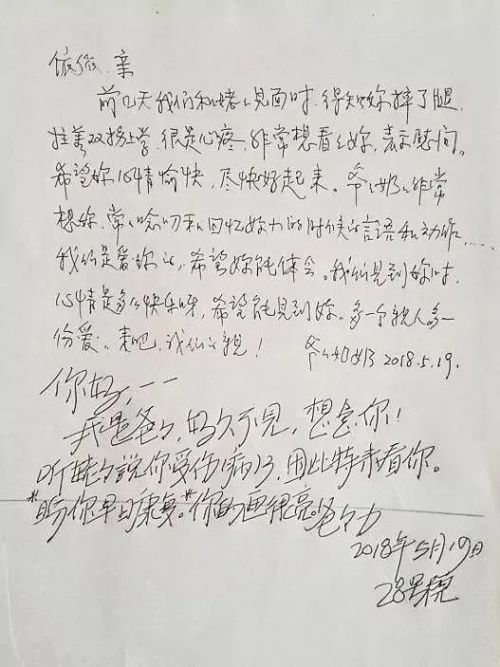 依依, 亲
前几天我们和姥々见面时, 得知妳摔了腿,
拄着双拐上学, 很是心疼, 非常想看々妳, 表示慰问。
希望妳心情愉快, 尽快好起来。爷々奶々非常
想妳, 常々念叨和回忆妳小的时候的言语和动作……
我们是爱妳的, 希望妳能体会。我们见到妳时,
心情是多么快乐呀, 希望能见到妳。多一个亲人多一
份爱。来吧, 我们的亲!
爷々奶奶 2018.5.19.
你好, 一一
我是爸々, 好久不見, 想念你!
听姥々說你受伤(病)了, 因此特来看你。
"盼你早日康复。"你的画很亮。爸々
2018年5月19日